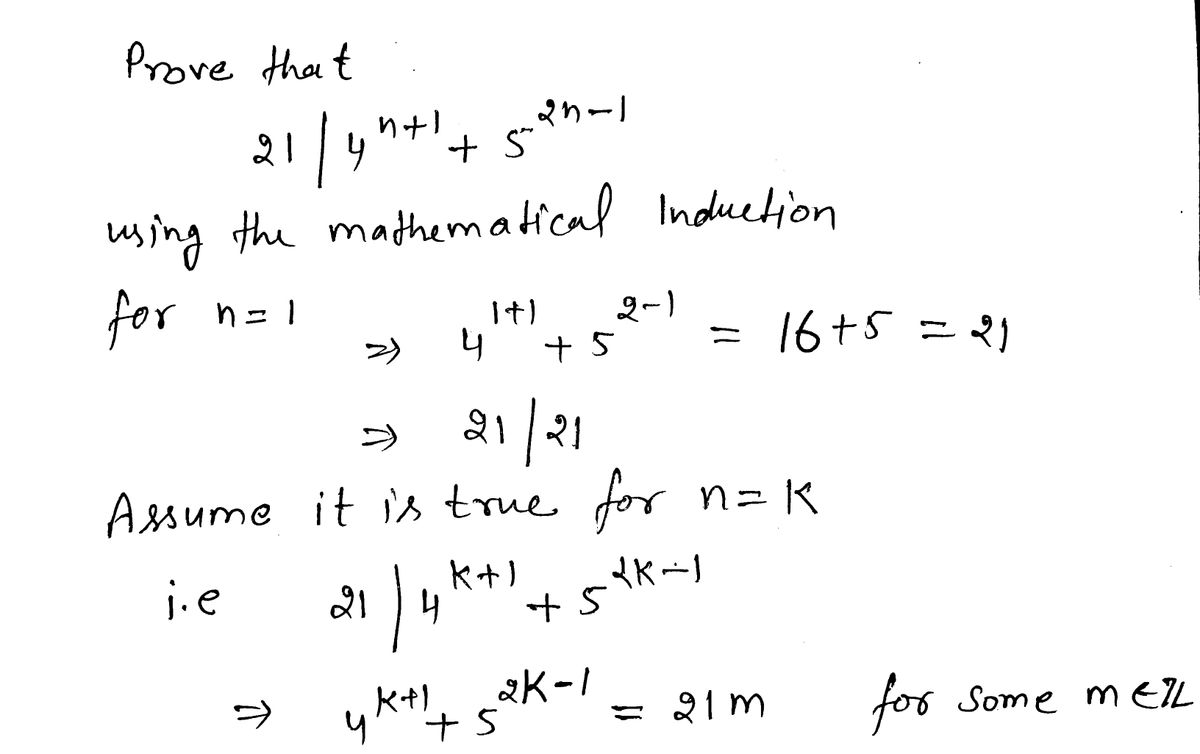 Prove that
21 | 4^{n+1} + 5^{2n-1}
using the mathematical Induction
for n=1 ⇒ 4^{1+1} + 5^{2-1} = 16+5 = 21
⇒ 21 | 21
Assume it is true for n=K
i.e 21 | 4^{k+1} + 5^{2K-1}
⇒ 4^{K+1} + 5^{2K-1} = 21m for some m ∈ ℤ